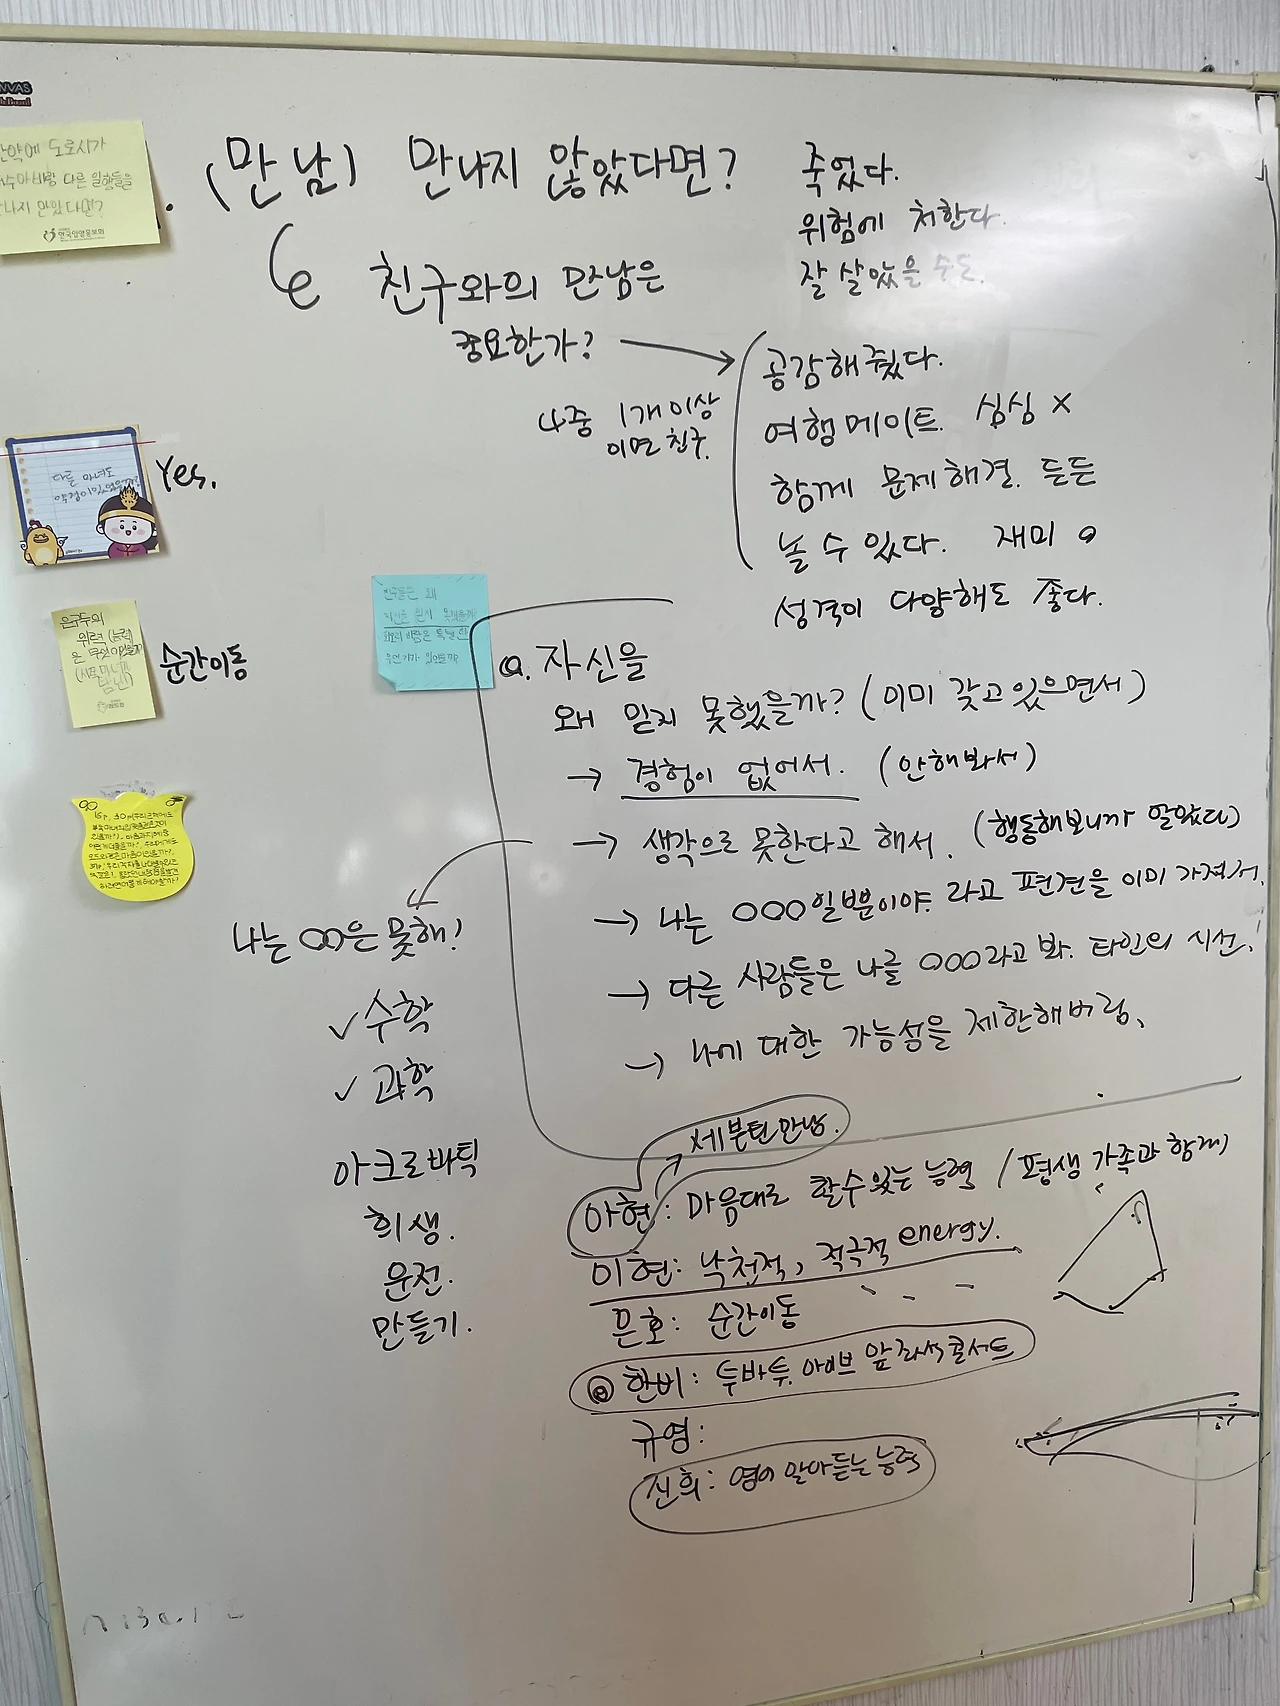 도로시가
다른 일행들을
(만남) 만나지 않았다면?
죽었다.
위험에 처한다.
잘 살았을 수도.
친구와의 만남은
중요한가?
공감해줬다.
여행메이트. 심심 X
함께 문제해결. 든든
놀 수 있다. 재미 O
성격이 다양해도 좋다.
4중 1개이상
이면 친구.
다른 마녀도
Yes.
은구두의
위력(능력)
은 무엇이었을까?
순간이동
Q. 자신을
왜 믿지 못했을까? (이미 갖고 있으면서)
→ 경험이 없어서. (안해봐서)
→ 생각으로 못한다고 해서. (행동해보니까 알았다)
→ 나는 OOO일뿐이야. 라고 편견을 이미 가져서.
→ 다른 사람들은 나를 OOO라고 봐. 타인의 시선.
→ 나에 대한 가능성을 제한해버림.
나는 OO은 못해!
✓ 수학
✓ 과학
아크로바틱
희생.
운전.
만들기.
세븐틴만남.
아현: 마음대로 할수있는 능력 / 평생 가족과 함께
이현: 낙천적, 적극적 energy.
은호: 순간이동
한비: 투바투. 아이브 앞좌석콘서트
규영:
신희: 영어 알아듣는 능력